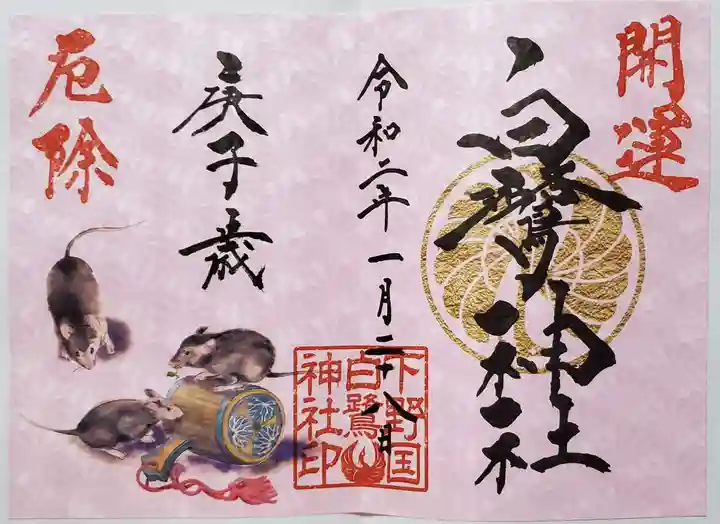 開運
白鷺神社
令和二年一月二十八日
庚子歳
厄除
下野国
白鷺
神社印